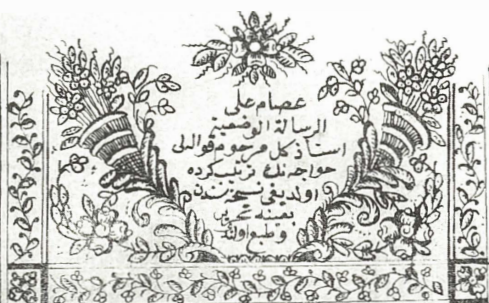 عصام على
الرسالة الوضعية
استاذ كل مرحوم قوالەلى
خواجه نك ترتيب كرده
اولديغى نسخه سندن
بعينه تحرير
وطبع اولندى